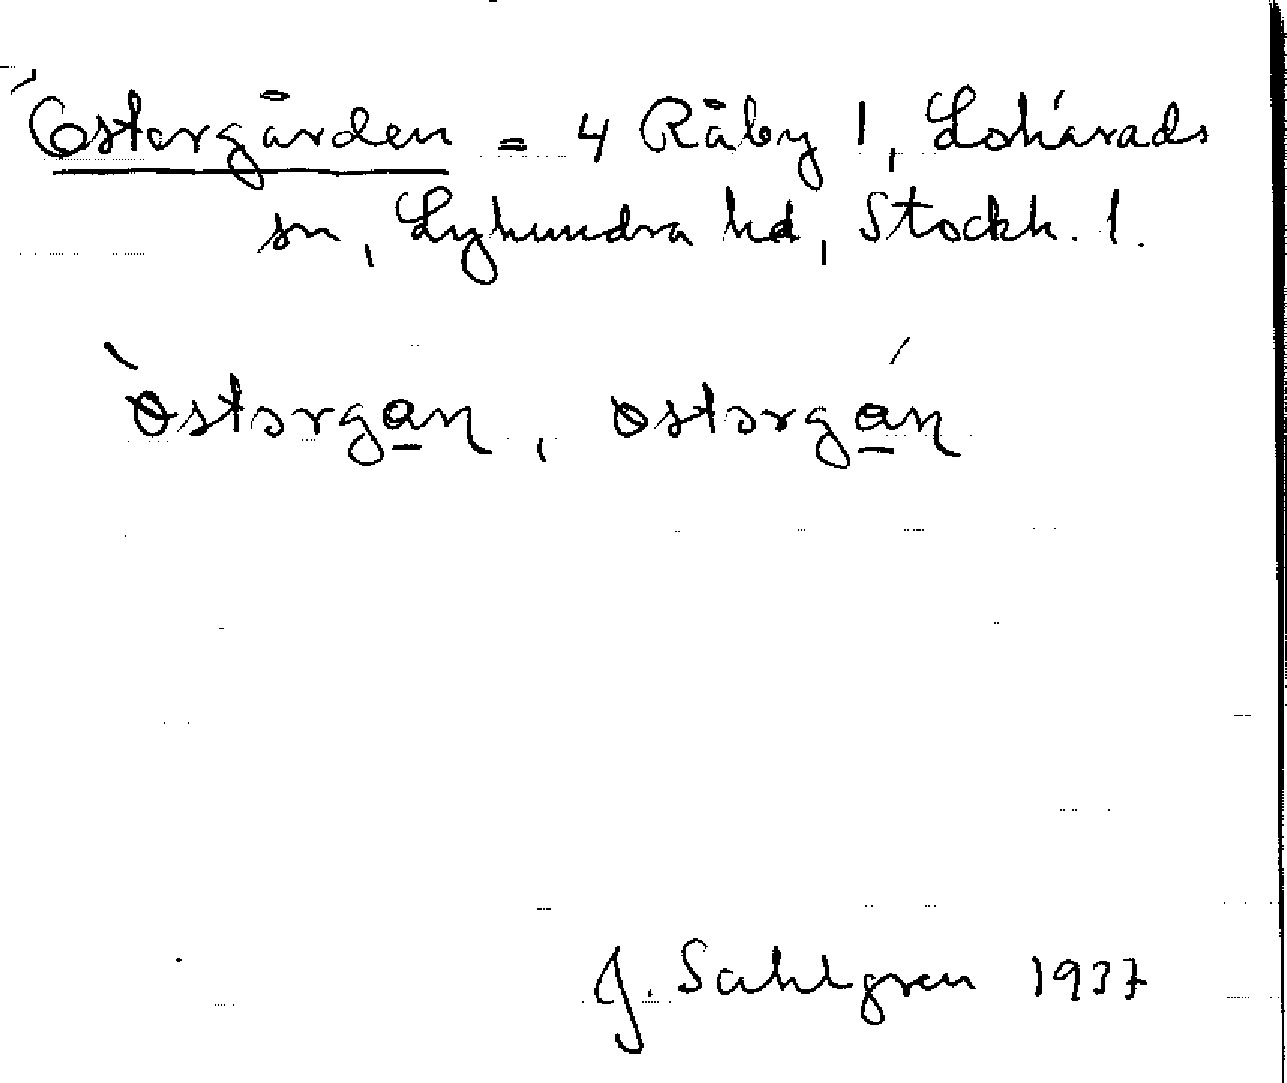 Östergården = 4 Råby 1, Lohärads
sn, Lyhundra hd, Stockh. l.
`østərga̲n, østərgá̲n
J. Sahlgren 1937